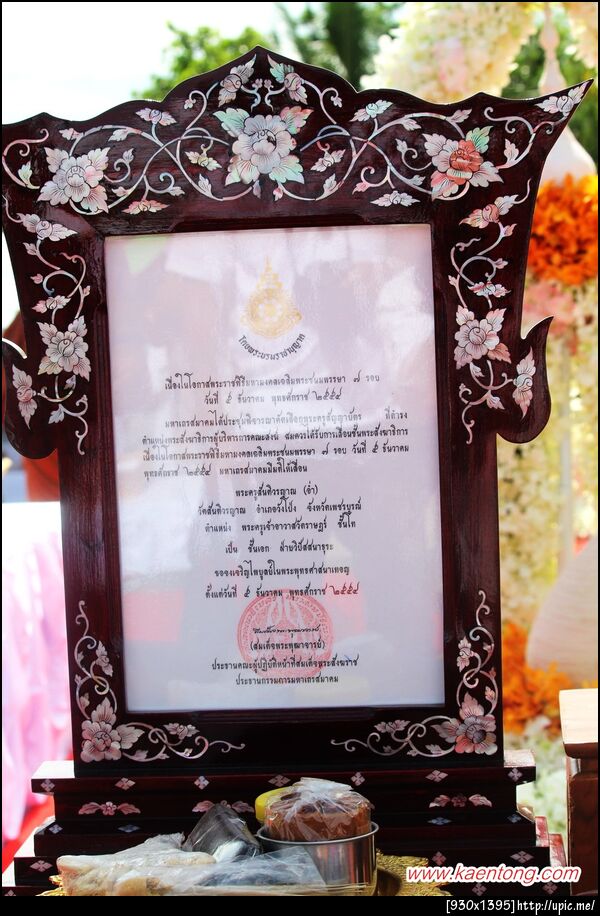 โดยพระบรมราชานุญาต
เนื่องในโอกาสพระราชพิธีมหามงคลเฉลิมพระชนมพรรษา ๗ รอบ
วันที่ ๕ ธันวาคม พุทธศักราช ๒๕๕๔
มหาเถรสมาคมได้ประชุมพิจารณาคัดเลือกพระครูสัญญาบัตร ที่ดำรง
ตำแหน่งพระสังฆาธิการผู้บริหารการคณะสงฆ์ สมควรได้รับการเลื่อนชั้นพระสังฆาธิการ
เนื่องในโอกาสพระราชพิธีมหามงคลเฉลิมพระชนมพรรษา ๗ รอบ วันที่ ๕ ธันวาคม
พุทธศักราช ๒๕๕๔ มหาเถรสมาคมมีมติให้เลื่อน
พระครูสันติวรญาณ (อ่ำ)
วัดสันติวรญาณ อำเภอวังโป่ง จังหวัดเพชรบูรณ์
ตำแหน่ง พระครูเจ้าอาวาสวัดราษฎร์ ชั้นโท
เป็น ชั้นเอก ฝ่ายวิปัสสนาธุระ
ขอจงเจริญไพบูลย์ในพระพุทธศาสนาเทอญ
ตั้งแต่วันที่ ๕ ธันวาคม พุทธศักราช ๒๕๕๔
(สมเด็จพระพุฒาจารย์)
ประธานคณะผู้ปฏิบัติหน้าที่สมเด็จพระสังฆราช
ประธานกรรมการมหาเถรสมาคม
www.kaentong.com
[930x1395]http://upic.me/